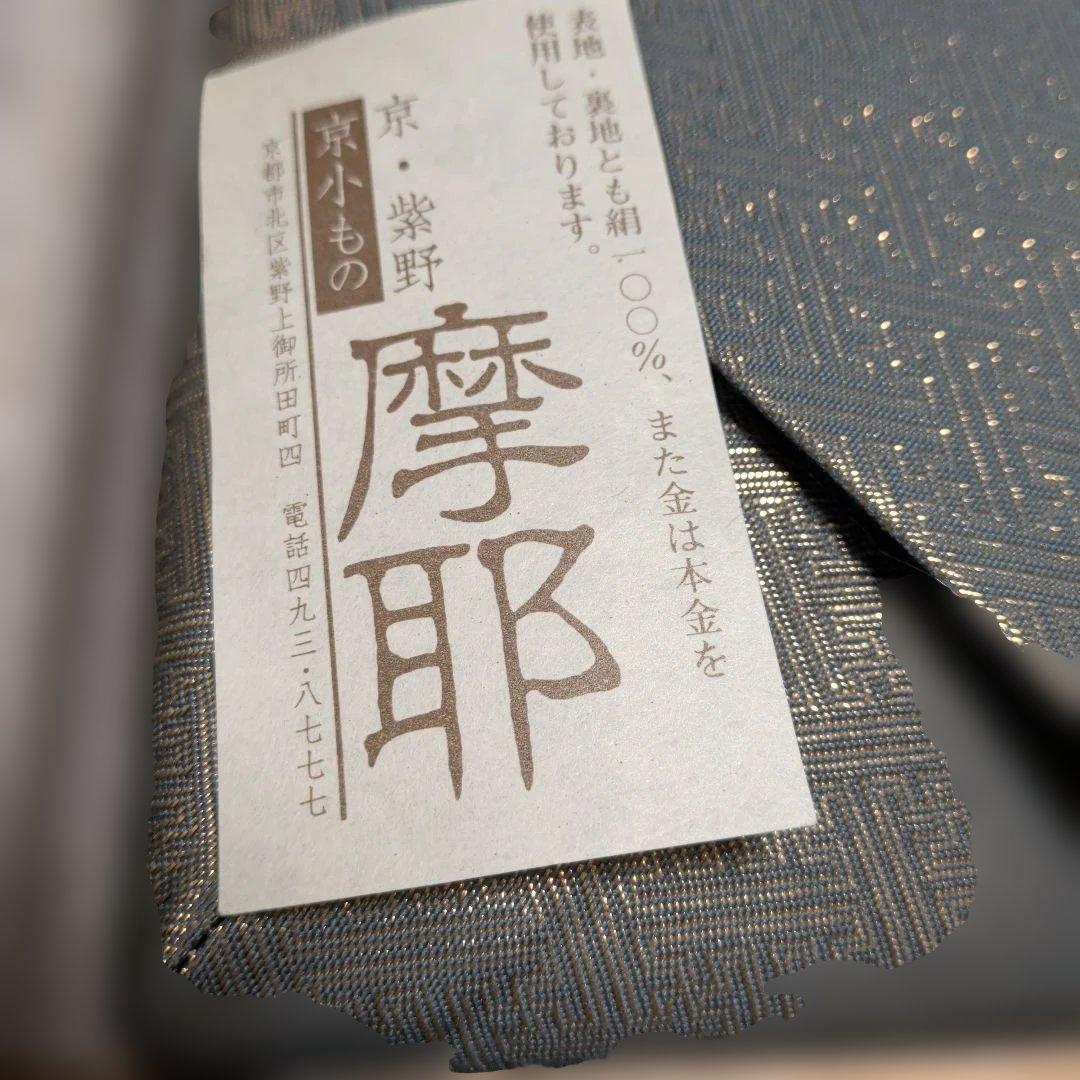 表地・裏地とも絹一〇〇%、また金は本金を
使用しております。
京・紫野
摩耶
京小もの
京都市北区紫野上御所田町四 電話四九三・八七七七